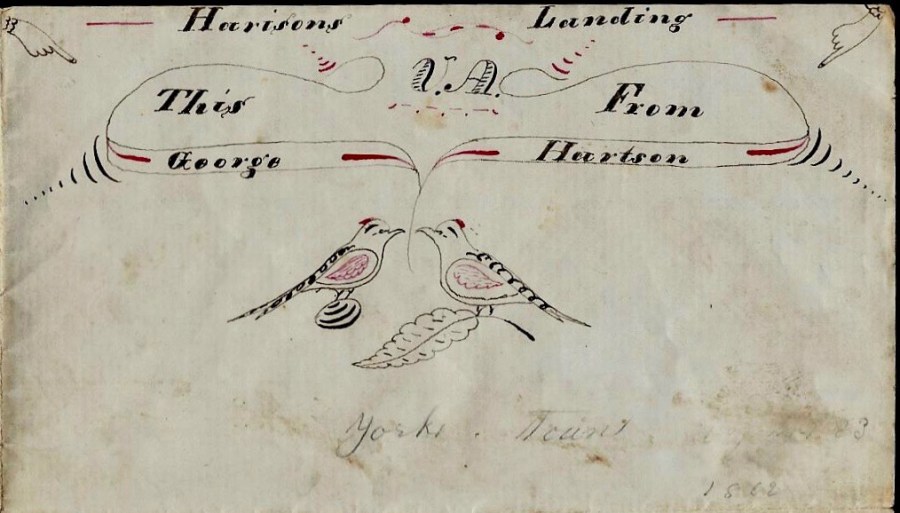 Harisons Landing
V.A.
This From
George Hartson
Yorks . Town 23
1862